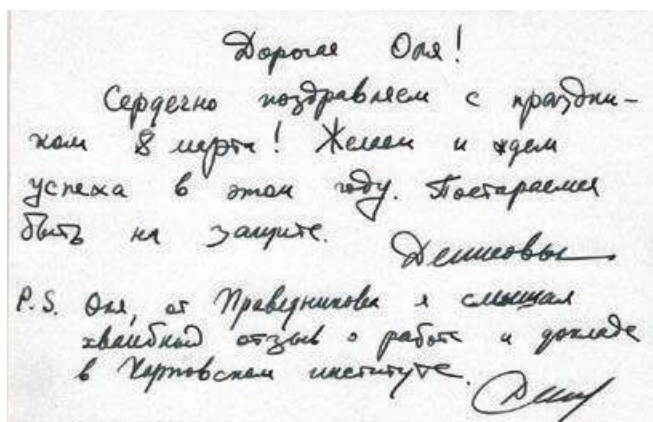 Дорогая Оля!
Сердечно поздравляем с праздни-
ком 8 марта! Желаем и ждем
успеха в этом году. Постараемся
быть на защите.
Денисовы
P.S. Оля, от Праведникова я слышал
хвалебный отзыв о работе и докладе
в Карповском институте.